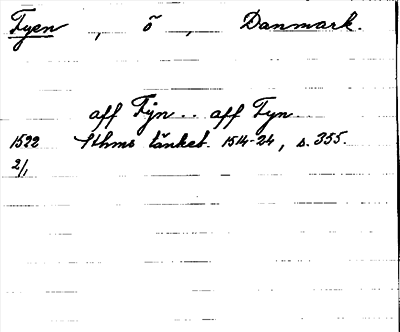 Fyen, ö, Danmark.
aff Fijn.. aff Fyn
1522 Sthms tänkeb. 1514-24, s. 355.
2/1